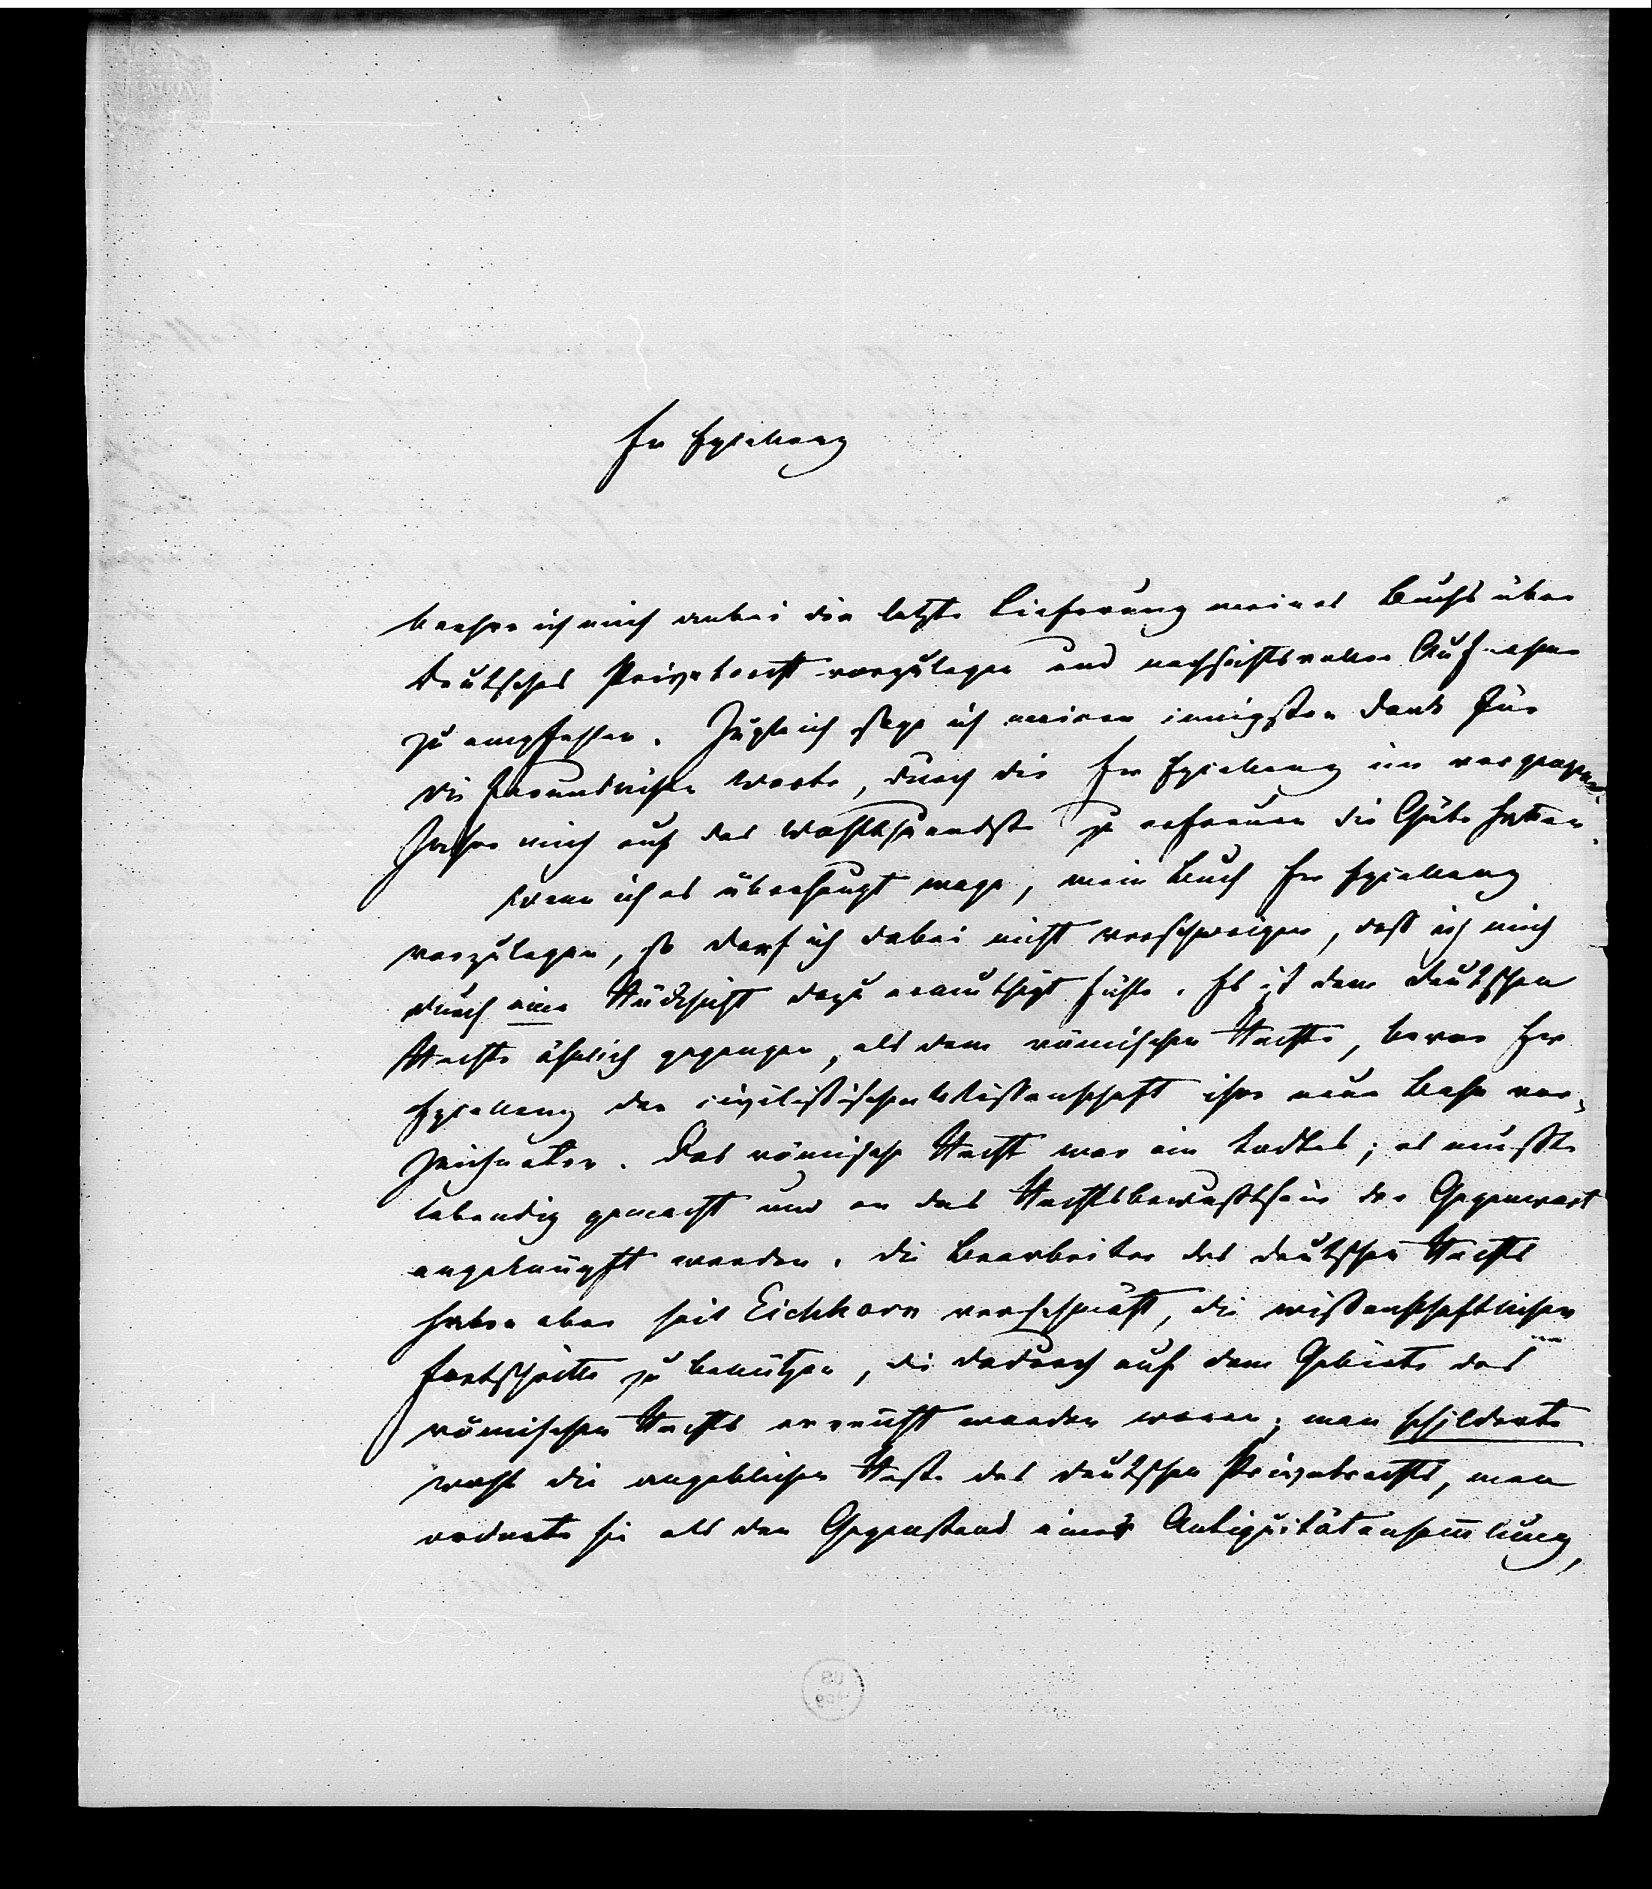 Ew Excellenz
beehre ich mich anbei die letzte Lieferung meines Buchs über
deutsches Privatrecht vorzulegen und nachsichtsvoller Aufnahme
zu empfehlen. Zugleich sage ich meinen innigsten Dank für
die freundlichen Worte, durch die Ew Excellenz im vergangenen
Jahre mich auf das Wohlthuendste zu erfreuen die Güte hatten.
Wenn ich es überhaupt wage, mein Buch Ew Excellenz
vorzulegen, so darf ich dabei nicht verschweigen, daß ich mich
durch eine Rücksicht dazu ermuthigt fühle. Es ist dem deutschen
Rechte ähnlich gegangen, als dem römischen Rechte, bevor Ew
Excellenz der civilistischen Wissenschaft ihre neue Bahn vor-
zeichneten. Das römische Recht war ein todtes; es mußte
lebendig gemacht und an das Rechtsbewußtsein der Gegenwart
angeknüpft werden. Die Bearbeiter des deutschen Rechts
haben aber seit Eichhorn verschmäht, die wissenschaftlichen
Fortschritte zu benützen, die dadurch auf dem Gebiete des
römischen Rechts erreicht worden waren; man schilderte
wohl die angeblichen Reste des deutschen Privatrechts, man
ordnete sie als den Gegenstand einer Antiquitätensammlung,